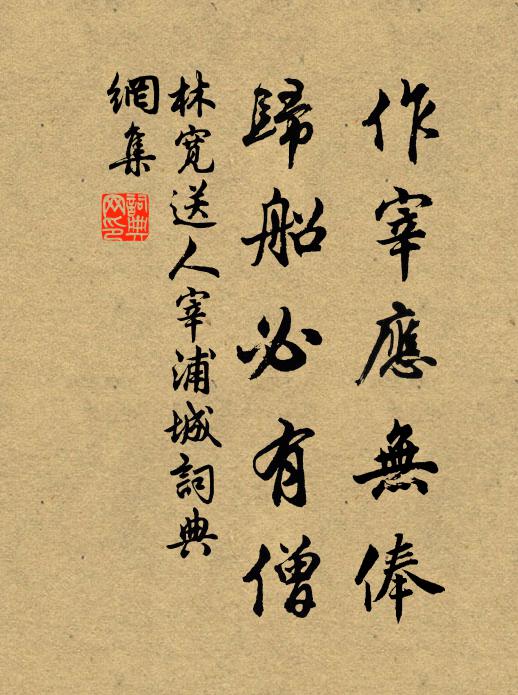 作宰應無俸
歸船必有僧
林寬送人宰浦城詞典
網集
詞典
网印